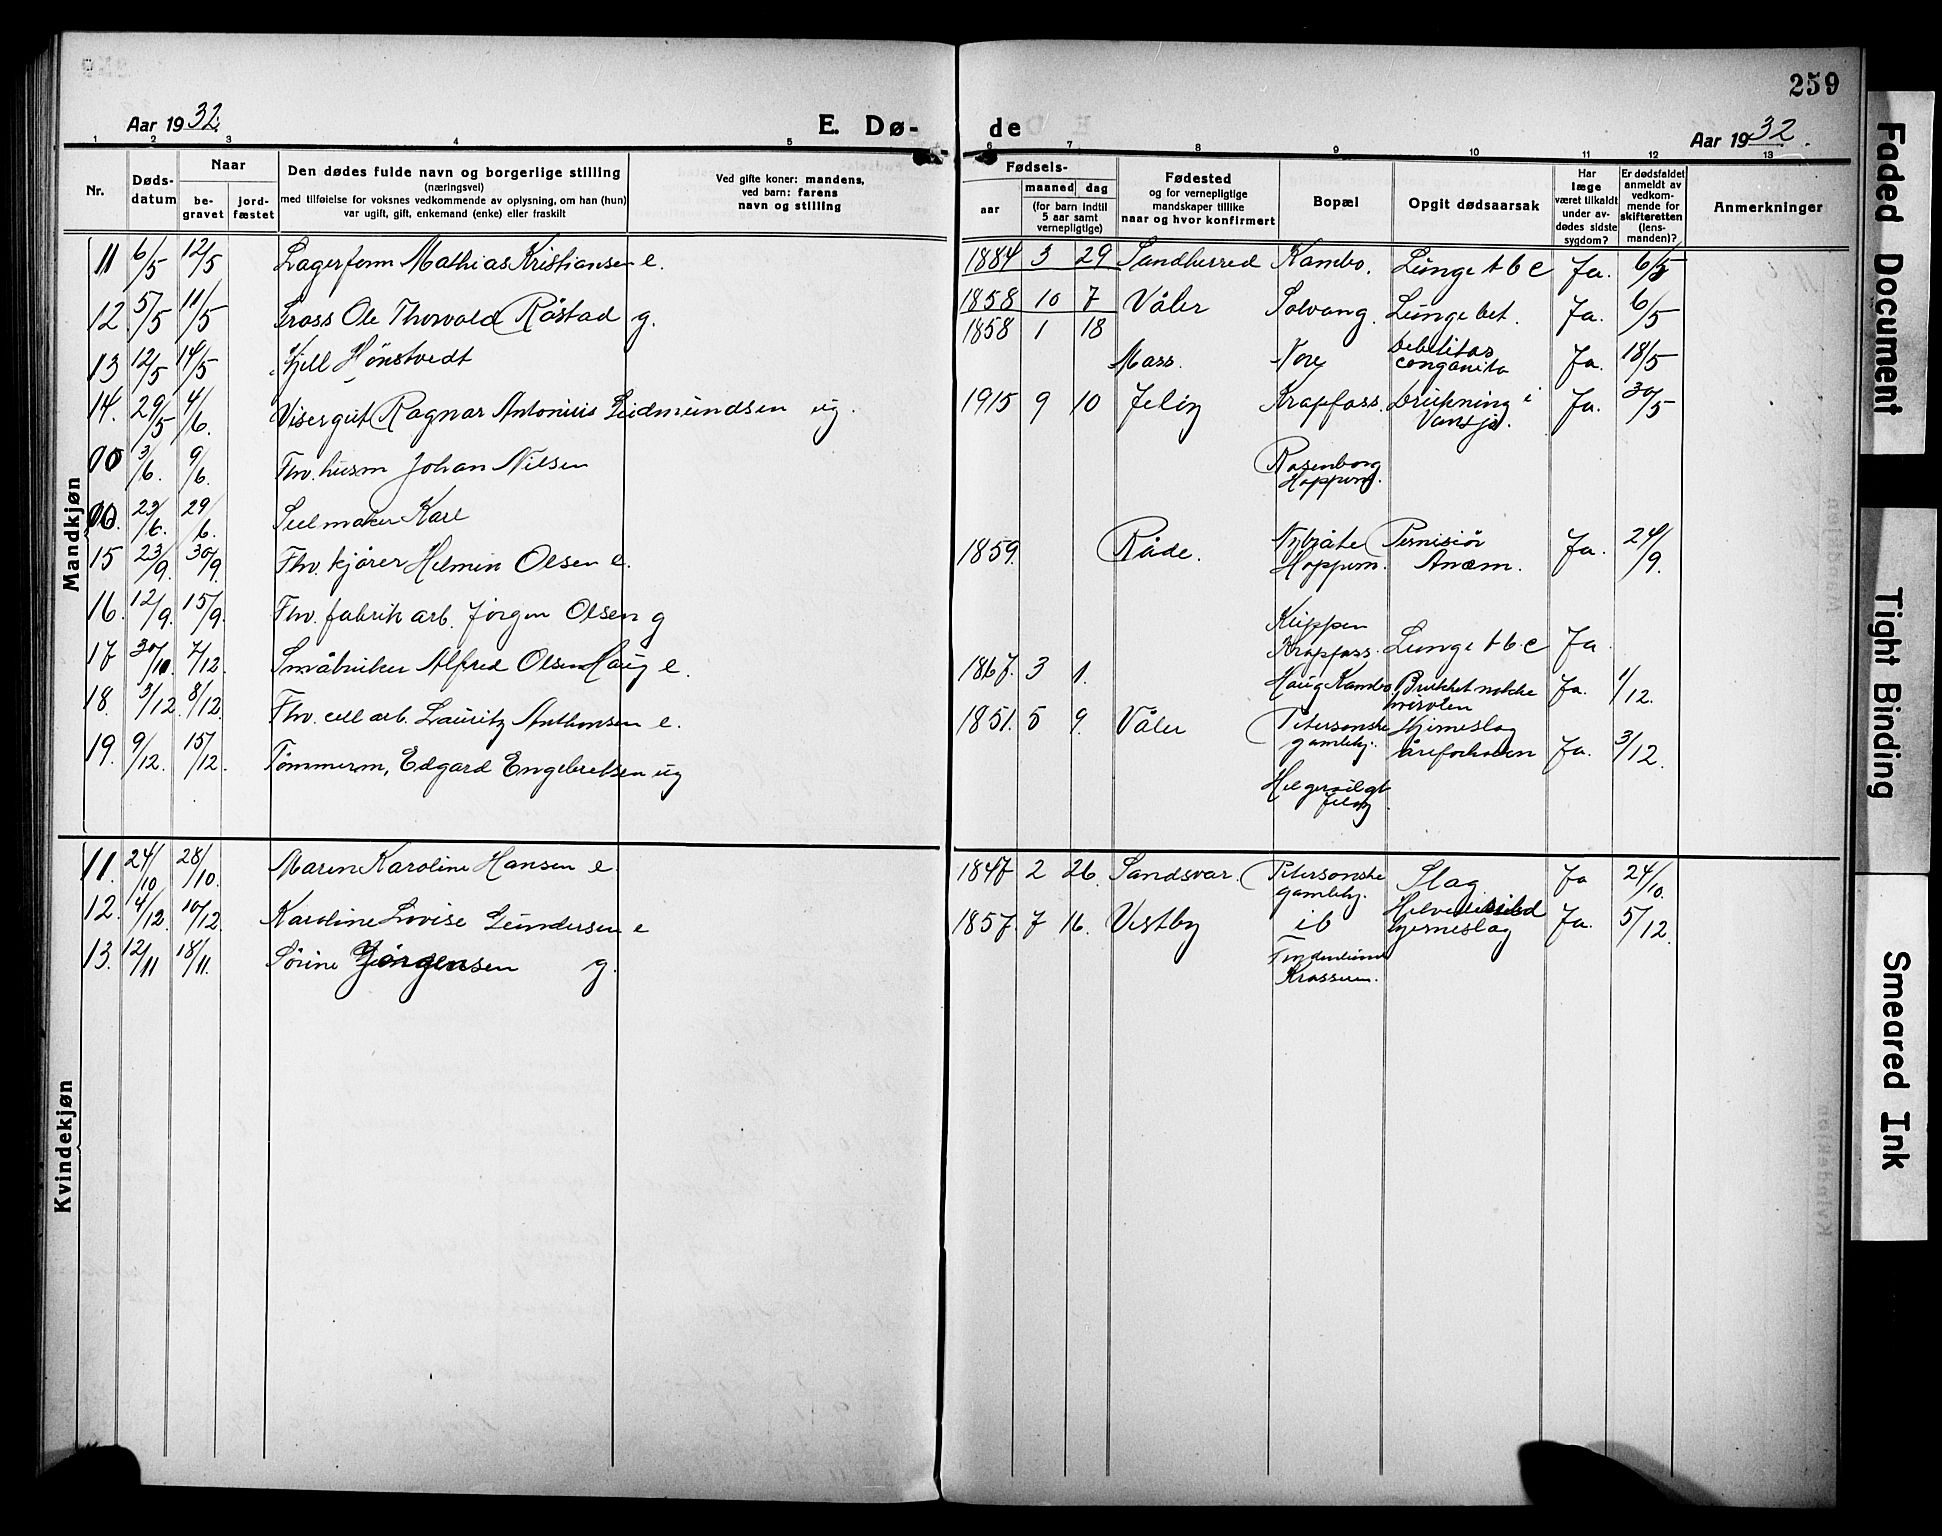 259
Aar 1932.
E. Dø-
de
Aar 1932.
1 2 3 4 5 6 7 8 9 10 11 12 13
Nr.
Døds-
datum
Naar
be-
gravet
jord-
fæstet
Den dødes fulde navn og borgerlige stilling
(næringsvei)
med tilføielse for voksnes vedkommende av oplysning, om han (hun)
var ugift, gift, enkemand (enke) eller fraskilt
Ved gifte koner: mandens,
ved barn: farens
navn og stilling
Fødsels-
aar
maaned
dag
(for barn indtil
5 aar samt
vernepligtige)
Fødested
og for vernepligtige
mandskaper tillike
naar og hvor konfirmert
Bopæl
Opgit dødsaarsak
Har
læge
været tilkaldt
under av-
dødes sidste
sygdom?
Er dødsfaldet
anmeldt av
vedkom-
mende for
skifteretten
(lens-
manden)?
Anmerkninger
Mandkjøn
11 6/5 12/5 Lagerform Mathias Kristiansen e. 1884 3 29 Sandherred Kambo. Lunge tbc Ja. 6/5
12 5/5 11/5 Ole Thorvald Råstad g. 1858 10 7 Våler Solvang. Lungebet. Ja. 6/5
1858 1 18
13 12/5 14/5 Kjell Hønstvedt Moss. Nore Debilitas
conganita Ja. 18/5
14. 29/5 4/6. Visergut Ragnar Antonius Gudmundsen ug. 1915 9 10 Jeløy Krapfoss. Drukning i
Vansjø. Ja. 30/5
00 3/6. 9/6. Fhv. husm Johan Nilsen Rosenborg
Hoppern.
00. 29/6. 29/6. Karl
15 23/9. 30/9. Fhv. kjører Helmin Olsen e. 1859. Råde. Nybråte
Hoppern. Pernisiør
Anæm. Ja. 24/9.
16. 12/9. 15/9. Fhv. fabrik arb. Jørgen Olsen g Krapfoss. Lunge tbc Ja.
17 30/10. 7/12. Småbruker Alfred Olsen Haug e. 1867. 3 1. Haug Kambo Brukket nakke Ja. 1/12.
18. 3/12. 8/12. Fhv. cell arb. Lauritz Anthonsen e. 1851. 5 9. Våler Petersonske
gamlehj. Hjerneslag
åreforkalkn Ja. 3/12.
19. 9/12. 15/12. Tømmerm, Edgard Engebretsen ug
Jeløy
Kvindekjøn
11. 24/10 28/10. Maren Karoline Hansen e 1847 2 26. Sandsvær. Petersonske
gamlehj. Slag. Ja 24/10.
12. 4/12. 10/12. Karoline Lovise Gundersen e 1857. 7 16. Vestby ib
hjerneslag Ja. 5/12.
13. 12/11 18/11. Sørine Jørgensen g.
Krosseren.
Faded Document
Tight Binding
Smeared Ink